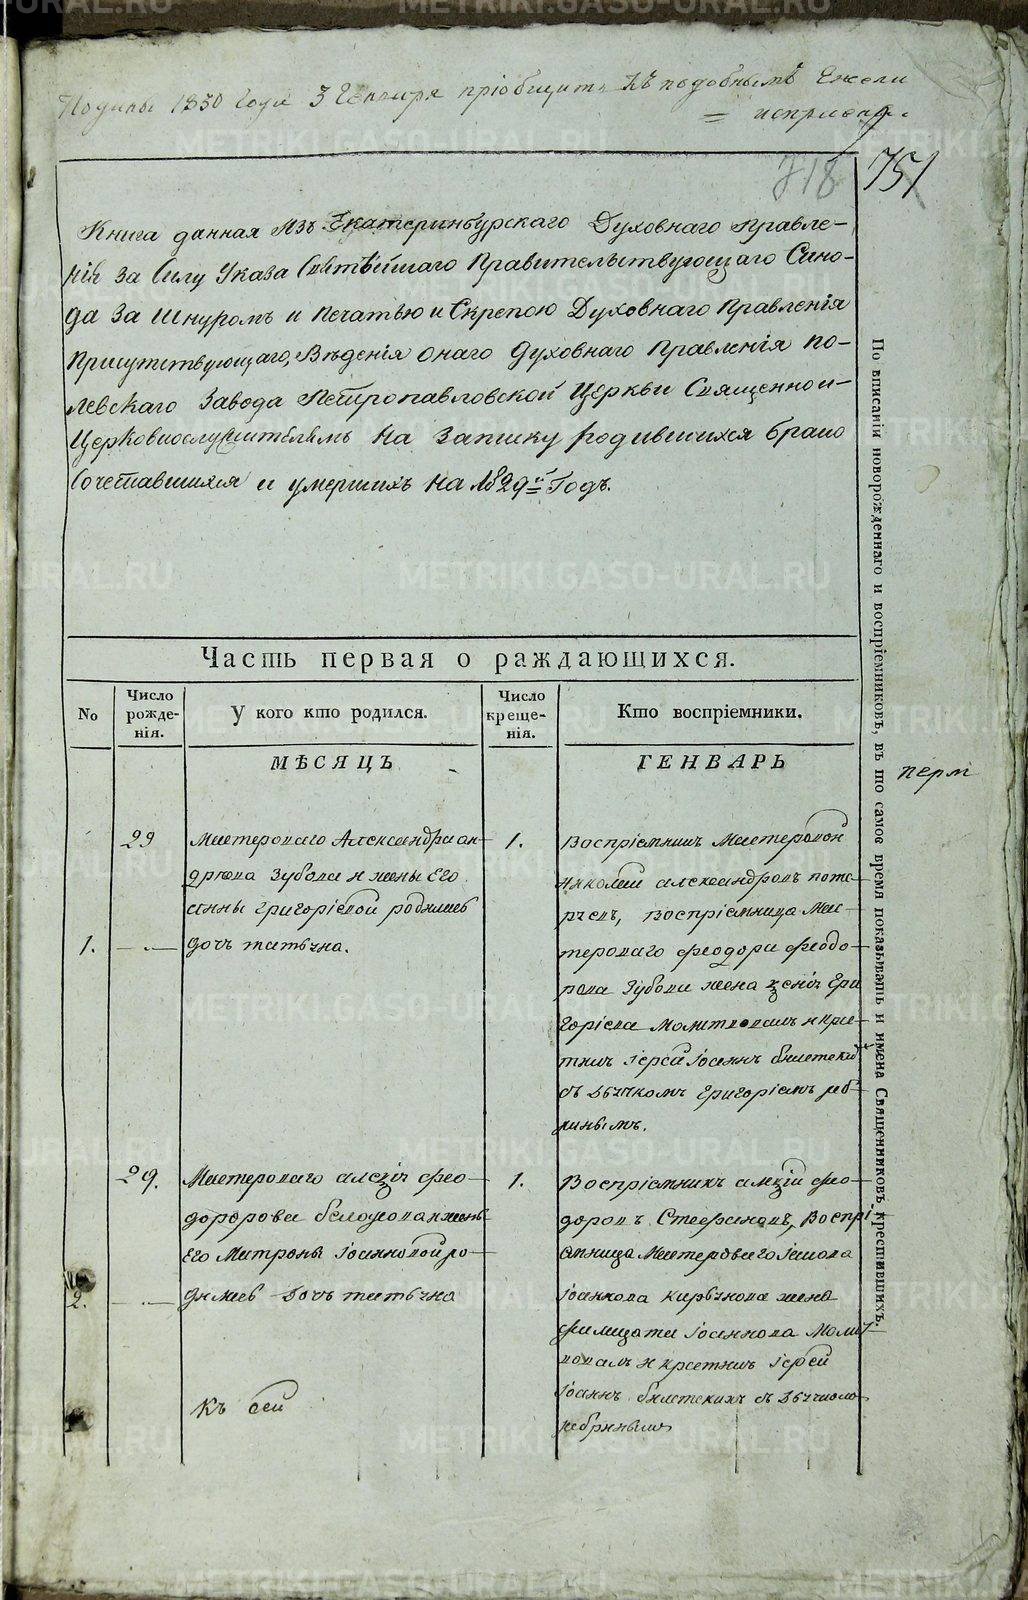 1830 года 3 Генваря пріобщить къ подобнымъ Ежели
718 751
Книга данная Изъ Екатеринбурскаго Духовнаго Правле-
нія За Силу Указа Святѣйшаго Правительствующаго Сѵно-
да За шнуромъ и печатью и Скрепою Духовнаго Правленія
Присутствующаго, Вѣденія Онаго Духовнаго Правленія По-
левскаго Завода Петропавловской Церкви Священно и-
Церковнослужителямъ На Записку родившихся брако
Сочетавшихся и умершихъ На 1829й Годъ.
Часть первая о раждающихся.
No
Число рожде-нія.
У кого кто родился.
Число креще-нія.
Кто воспріемники.
МѢСЯЦЪ
ГЕНВАРЬ
перм
29 Мастероваго Александра ан-
дрѣева Зубова и жены Его
анны григоріевой родилась
1. дочь татьяна.
1. Воспріемникъ Мастеровой
николай александровъ
воспріемница Мас-
тероваго феодора феодо-
рова Зубова жена Гри
горіева Молитвовалъ и кре-
тилъ іерей іоаннъ
съ дьячкомъ григоріемъ реб-
ринымъ.
29. Мастероваго фео-
доророва белоусова жены
Его Матроны іоанновой ро-
2. дилась дочь татьяна
1. Воспріемникъ фео-
доровъ Стефановъ, Воспрі-
емница Мастероваго
іоаннова жена
іоаннова Молит
вовалъ и крестилъ іерей
іоаннъ съ дьячкомъ
ребринымъ
Къ сей
По вписаніи новорожденнаго и воспріемниковъ, въ то самое время показывать и имена Священниковъ крестившихъ.
METRIKI.GASO-URAL.RU